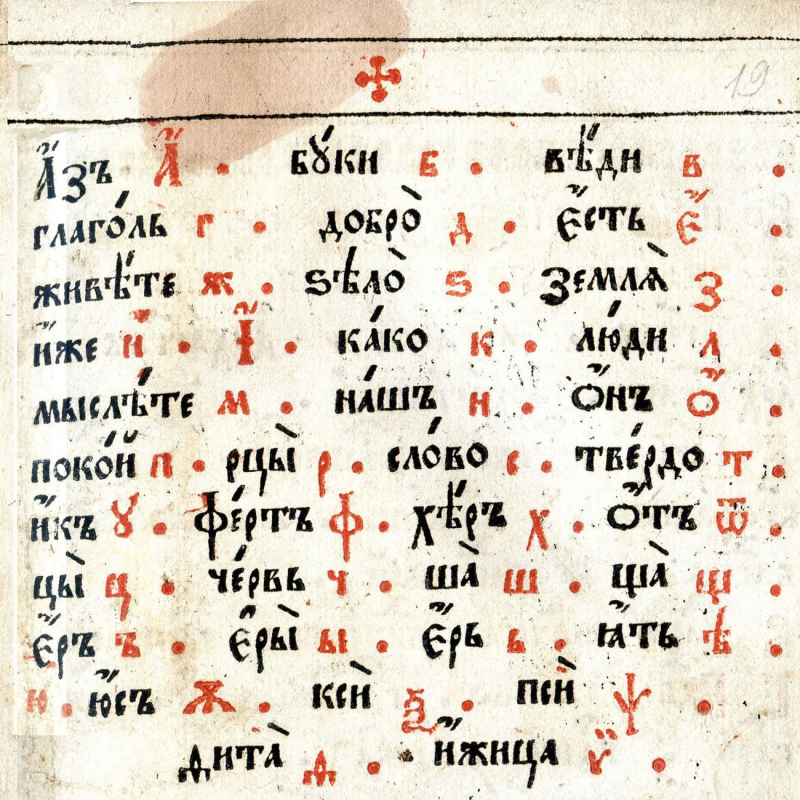 19
А҆́зъ А҆́ · бꙋ́ки б · вѣ́ди в ·
глаго́ль г · добро̀ д · є҆́сть є҆́ ·
живѣ́те ж · ѕѣло̀ ѕ · землѧ̀ з ·
и҆́же и҆́ · І҆̃ · ка́ко к · лю́ди л ·
мыслѣ́те м · на́шъ н · ѻ҆́нъ ѻ҆́ ·
поко́й п · рцы̀ р · сло́во с · тве́рдо т ·
и҆́къ ꙋ · фе́ртъ ф · хѣ́ръ х · ѻ҆́тъ ѿ ·
цы̀ ц · че́рвь ч · ша̀ ш · ща̀ щ ·
є҆́ръ ъ · є҆ры̀ ы · є҆́рь ь · ꙗ҆́ть ѣ ·
ю · ю҆́съ ѫ · ксѝ ѯ · псѝ ѱ ·
дита̀ д · и҆́жица ѵ҆́ ·